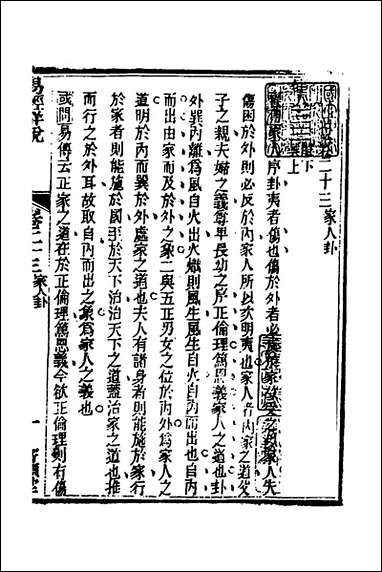 二十三 家人卦
下
上
家人序卦夷者傷也傷於外者必反於家故受之以家人夫
傷困於外則必反於內家人所以次明夷也家人者內家之道父
子之親夫婦之義尊卑長幼之序正倫理篤恩義家人之道也卦
外巽內離為風自火出火熾則風生風生自火自內而出也自內
而出由家而及於外之象二與五正男女之位於內外為家人之
道明於內而巽於外處家之道也夫人有諸身者則能施於家行
於家者則能施於國至於天下治治天下之道蓋治家之道也推
而行之於外耳故取自內而出之象為家人之義也
或問易傳云正家之道在於正倫理篤恩義今欲正倫理則有傷
易經詳說
卷二十三 家人卦
一